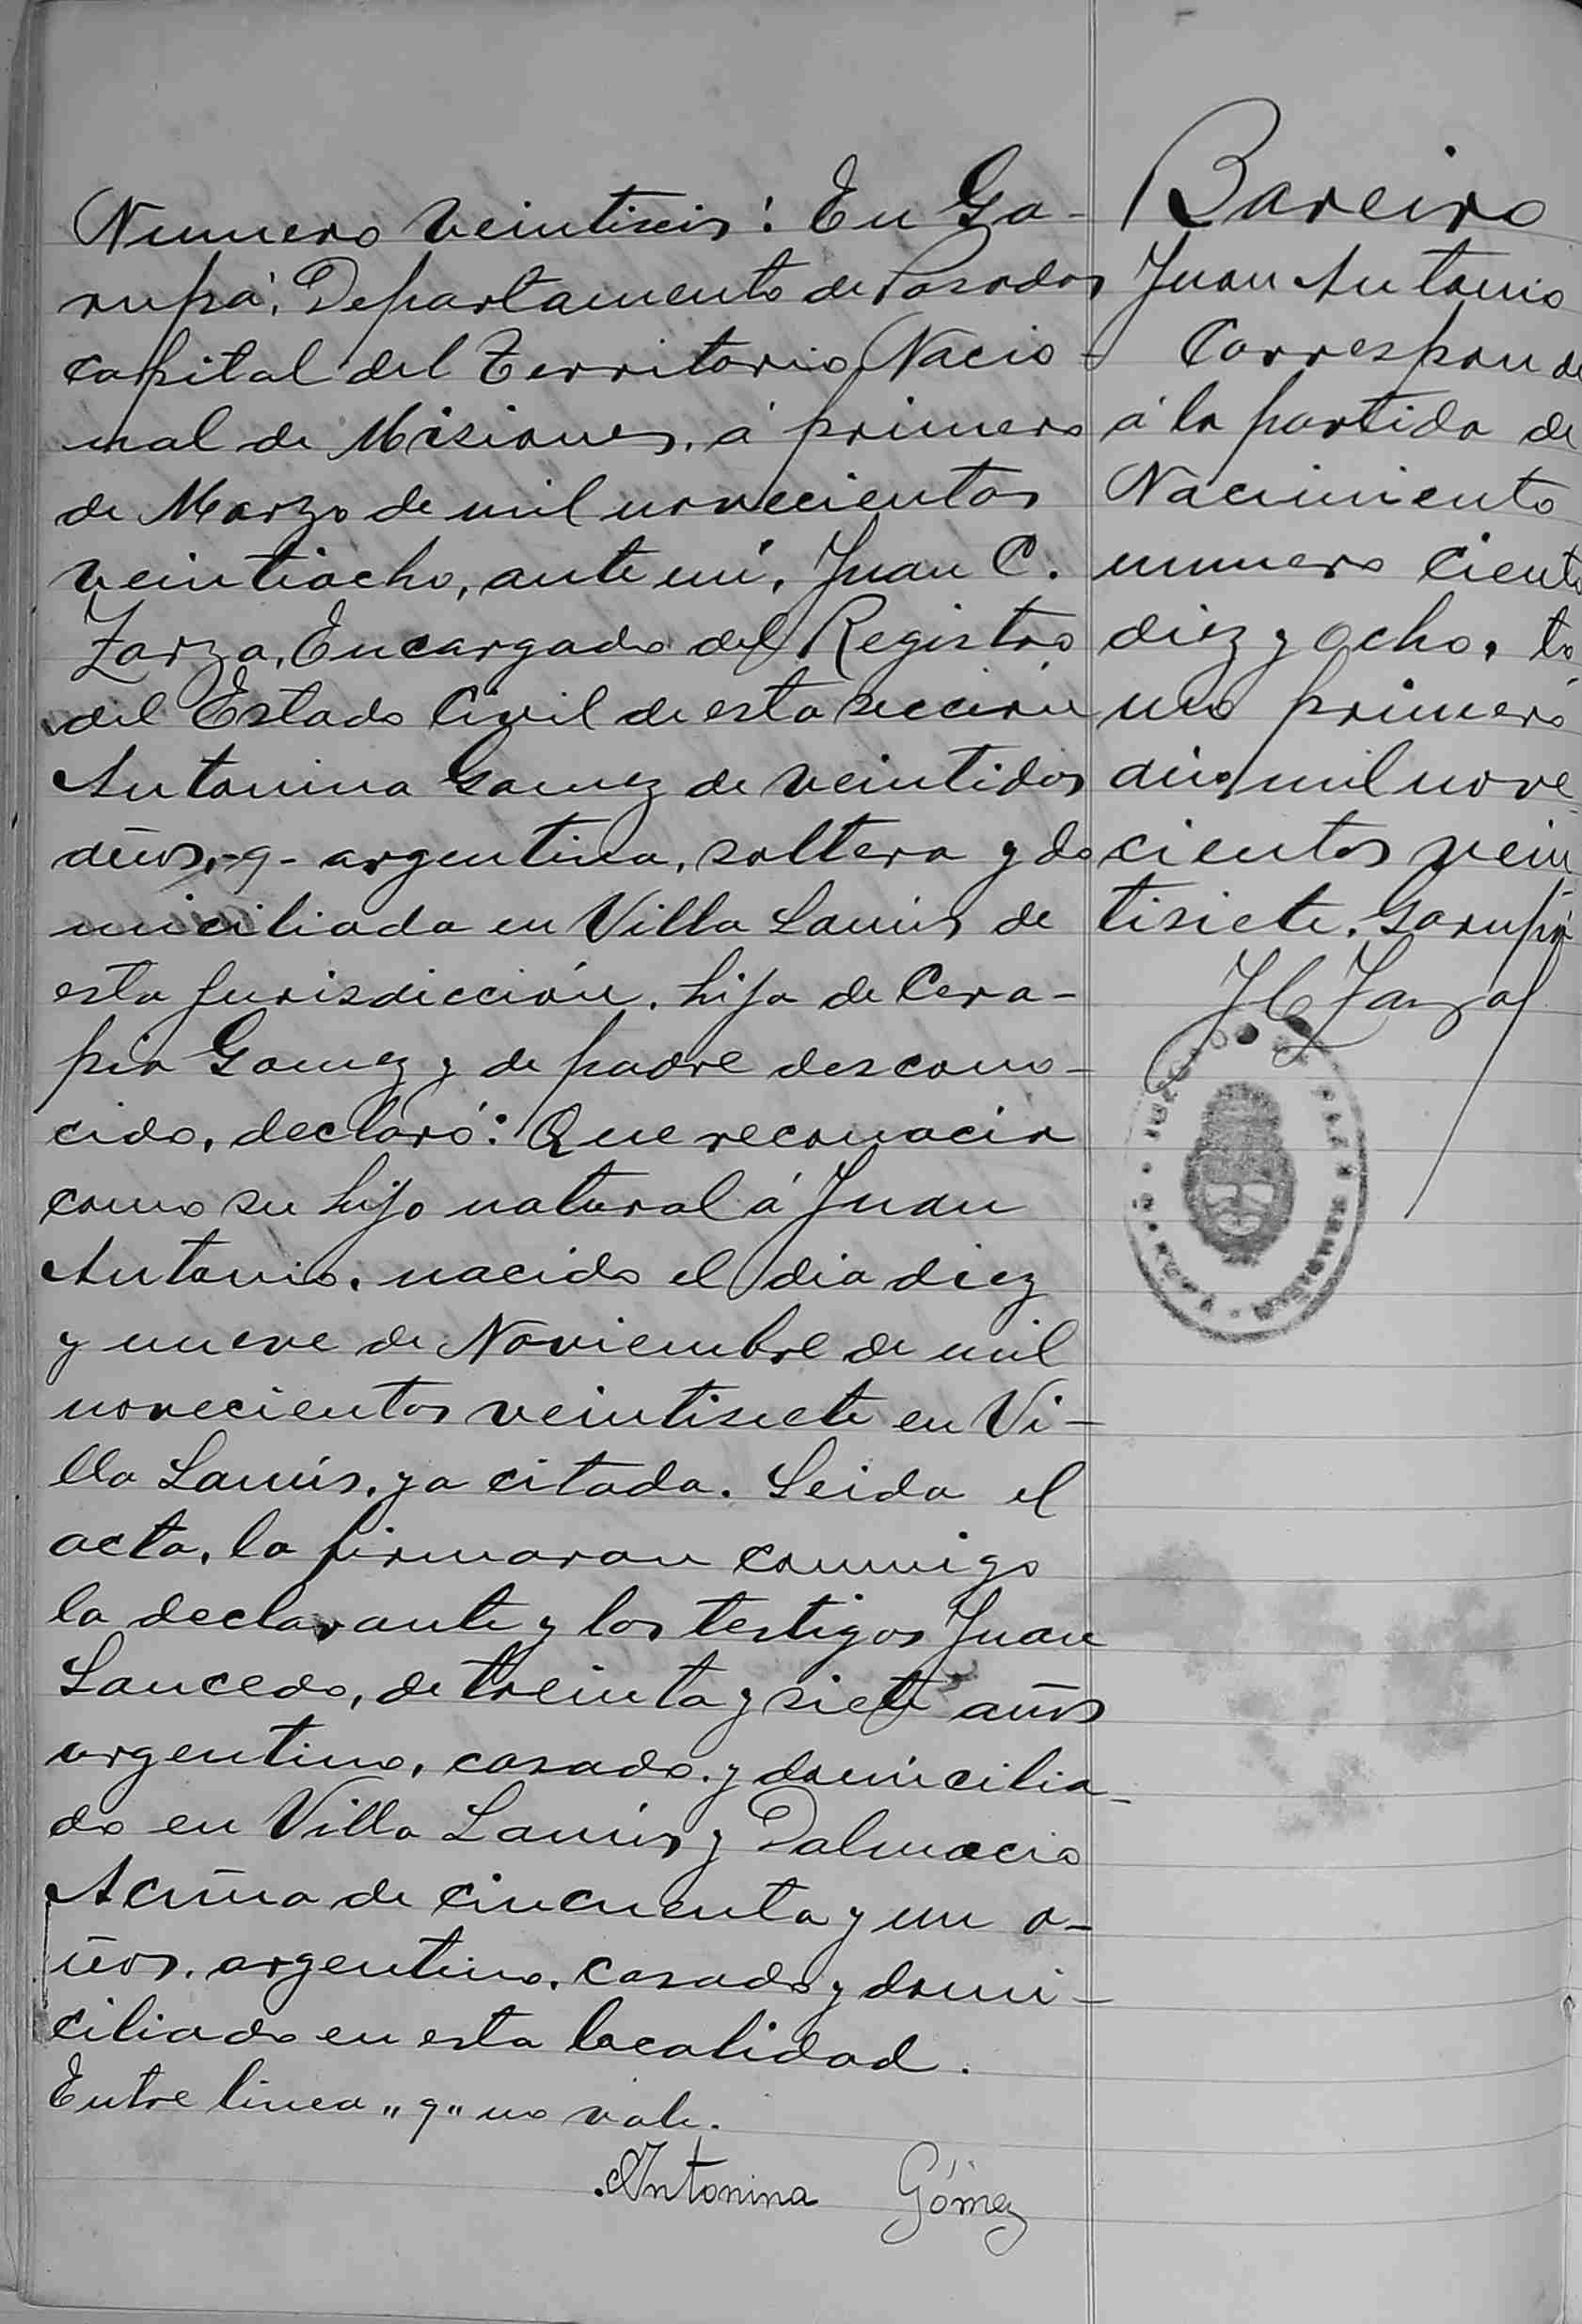 Numero veintiseis: En Ga-
rupá, Departamento de Posadas
capital del Territorio Nacio-
nal de Misiones, á primero
de Marzo de mil novecientos
veintiocho, ante mi, Juan C.
Zarza, Encargado del Registro
del Estado Civil de esta seccion
Antonina Gomez de veintidos
años, -y- argentina, soltera y do
miciliada en Villa Lanús de
esta jurisdicción, hija de Cera-
pia Gomez y de padre descono-
cido, declaró: Que reconocia
como su hijo natural á Juan
Antonio, nacido el dia diez
y nueve de Noviembre de mil
novecientos veintisiete en Vi-
lla Lanús, ya citada. Leida el
acta, la firmaron conmigo
la declarante y los testigos Juan
Saucedo, de treinta y siete años
argentino, casado y domicilia-
do en Villa Lanús y Dalmacio
Acuña de cincuenta y un a-
ños, argentino, casado y domi-
ciliado en esta localidad.
Entre linea "y" no vale.
Antonina Gómez
Bareiro
Juan Antonio
Corresponde
á la partida de
Nacimiento
numero ciento
diez y ocho, to
mo primero
año mil nove
cientos vein
tisiete. Garupá
J C Zarza